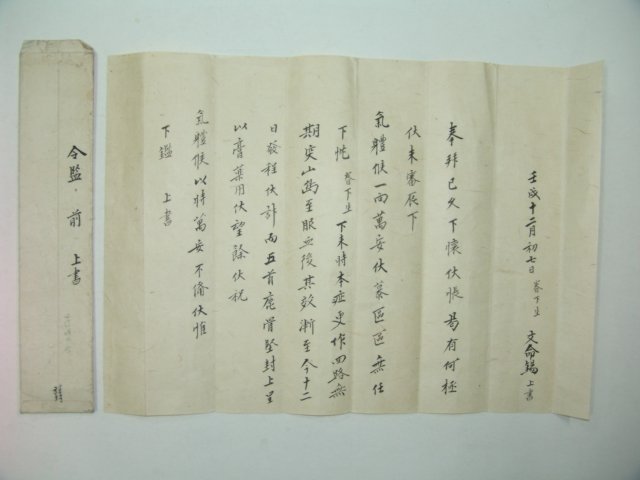 壬戌十二月初七日 眷下生 文命鎬 上書
奉拜已久下懷伏悵曷有何極
伏未審辰下
氣體候一向萬安伏慕區區無任
下忱 眷下生 下來時本症更作回路無
期矣山 至服血後其效漸至今十二
日發程伏計而五首鹿骨堅封上呈
以膏藥用伏望餘伏祝
氣體候以時萬安不備伏惟
下鑑 上書
令監 前 上書